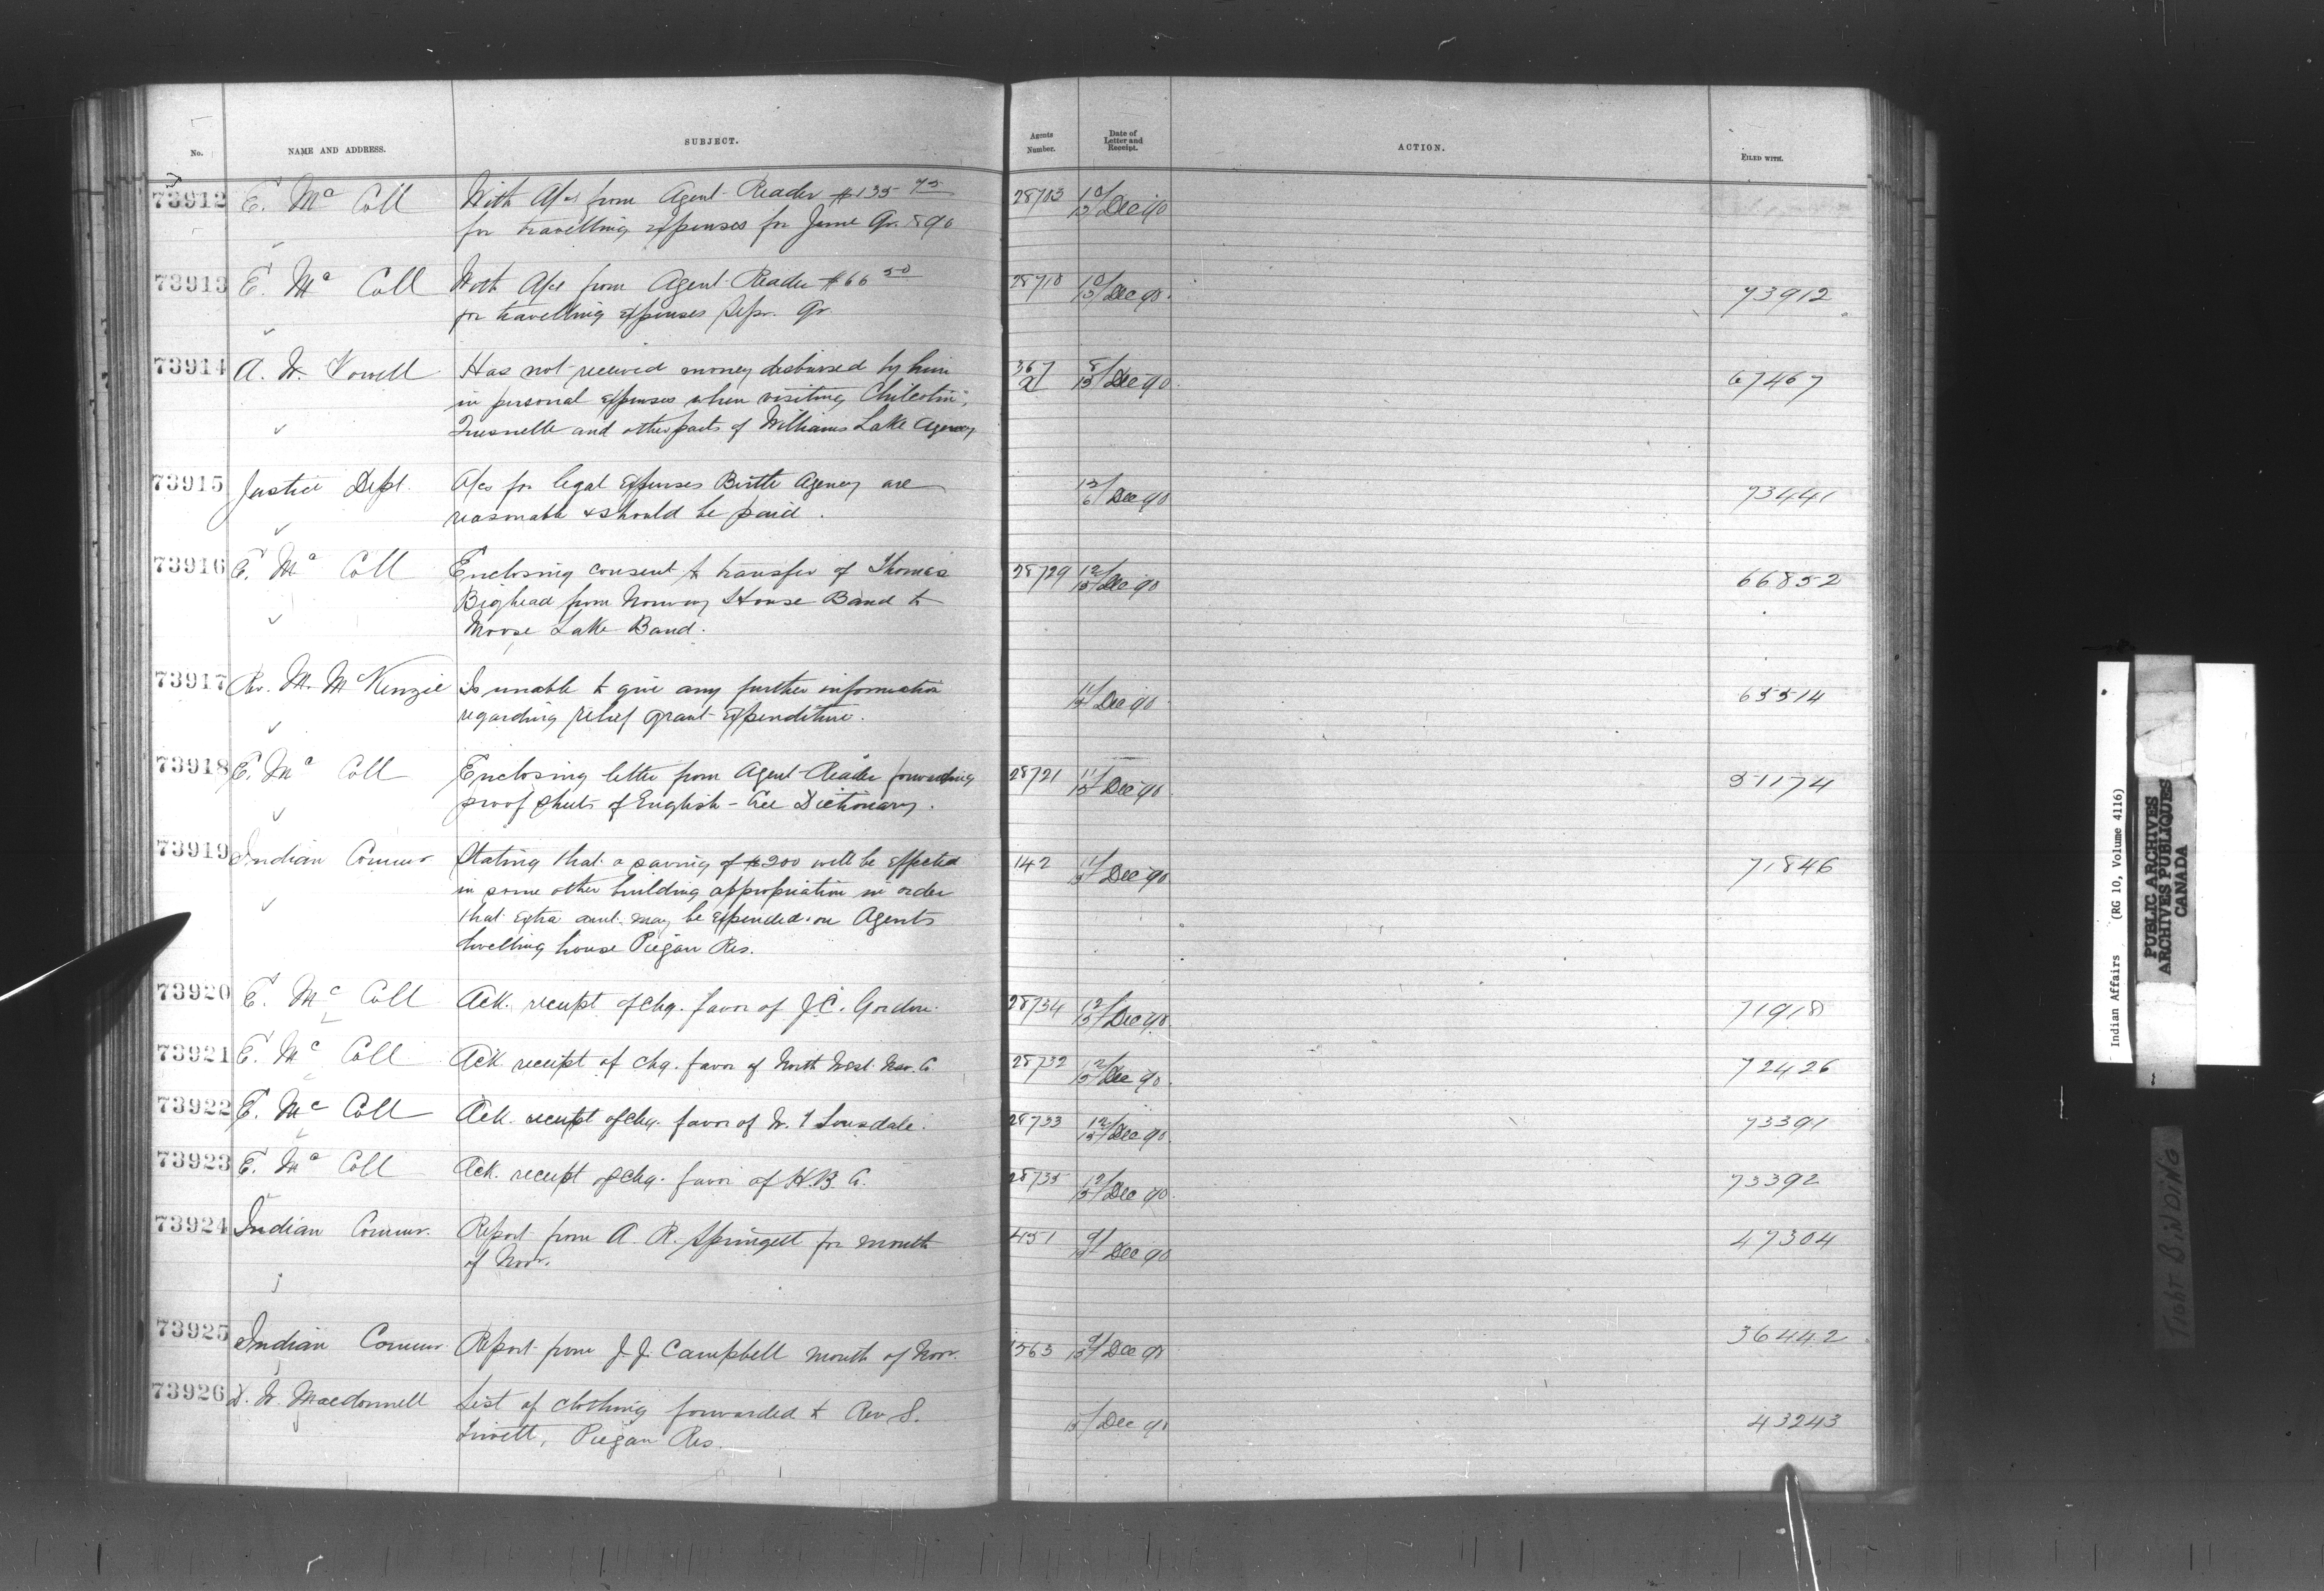 No. NAME AND ADDRESS. SUBJECT. Agents Number. Date of Letter and Receipt. ACTION. FILED WITH.
73912 E. McColl With A/cs from Agent Reader $135 75 28703 10/15 Dec 90
for travelling expenses for June Qr. 890
73913 E. McColl With A/cs from Agent Reader $66 50 28710 10/15 Dec 90. 73912
for travelling expenses Sepr. Qr.
73914 A. W. Vowell Has not received money disbursed by him 367 a 8/15 Dec 90. 67467
in personal expenses when visiting Chilcotin,
Quesnelle and other parts of Williams Lake Agency
73915 Justice Dept. A/cs for legal expenses Birtle Agency are Dec 90 73441
reasonable & should be paid.
73916 E. McColl Enclosing consent to transfer of Thomas 28729 12/15 Dec 90 66852
Bighead from Norway House Band to
Moose Lake Band.
73917 Rv. M. McKenzie Is unable to give any further information 11/15 Dec 90 65514
regarding relief grant expenditure.
73918 E. McColl Enclosing letter from Agent Reader forwarding 28721 11/15 Dec 90 51174
proof sheets of English-Cree Dictionary.
73919 Indian Commr Stating that a saving of $200 will be effected 142 11/15 Dec 90 71846
in some other building appropriation in order
that extra amt. may be expended on Agents
dwelling house Piegan Res.
73920 E. McColl Ack. receipt of chq. favor of J.C. Gordon. 28734 12/15 Dec 90. 71918
73921 E. McColl Ack receipt of chq. favor of North West Nav. Co 28732 12/15 Dec 90. 72426
73922 E. McColl Ack. receipt of chq. favor of W. T Lonsdale. 28733 12/15 Dec 90 73391
73923 E. McColl Ack. receipt of chq. favor of H.B. Co. 28735 12/15 Dec 90. 73392
73924 Indian Commr. Report from A. R. Springett for month 451 9/15 Dec 90 47304
of Novr.
73925 Indian Commr. Report from J. J. Campbell month of Novr. 1563 9/15 Dec 90 36442
73926 D. W. Macdonnell List of clothing forwarded to Rev S. 15/ Dec 90 43243
Trivett, Piegan Res.
Indian Affairs (RG 10, Volume 4116)
PUBLIC ARCHIVES
ARCHIVES PUBLIQUES
CANADA
TigHT BiNDiNG